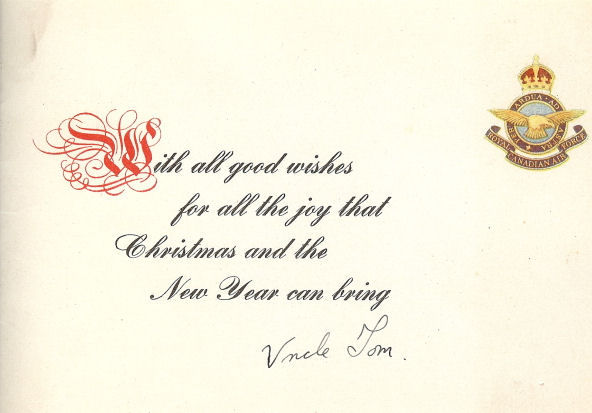 With all good wishes
for all the joy that
Christmas and the
New Year can bring
Uncle Tom.
PER ARDUA AD ASTRA
ROYAL CANADIAN AIR FORCE